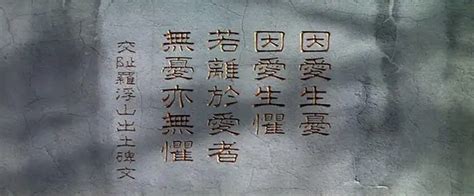 因愛生憂
因愛生懼
若離於愛者
無憂亦無懼
交趾羅浮山出土碑文